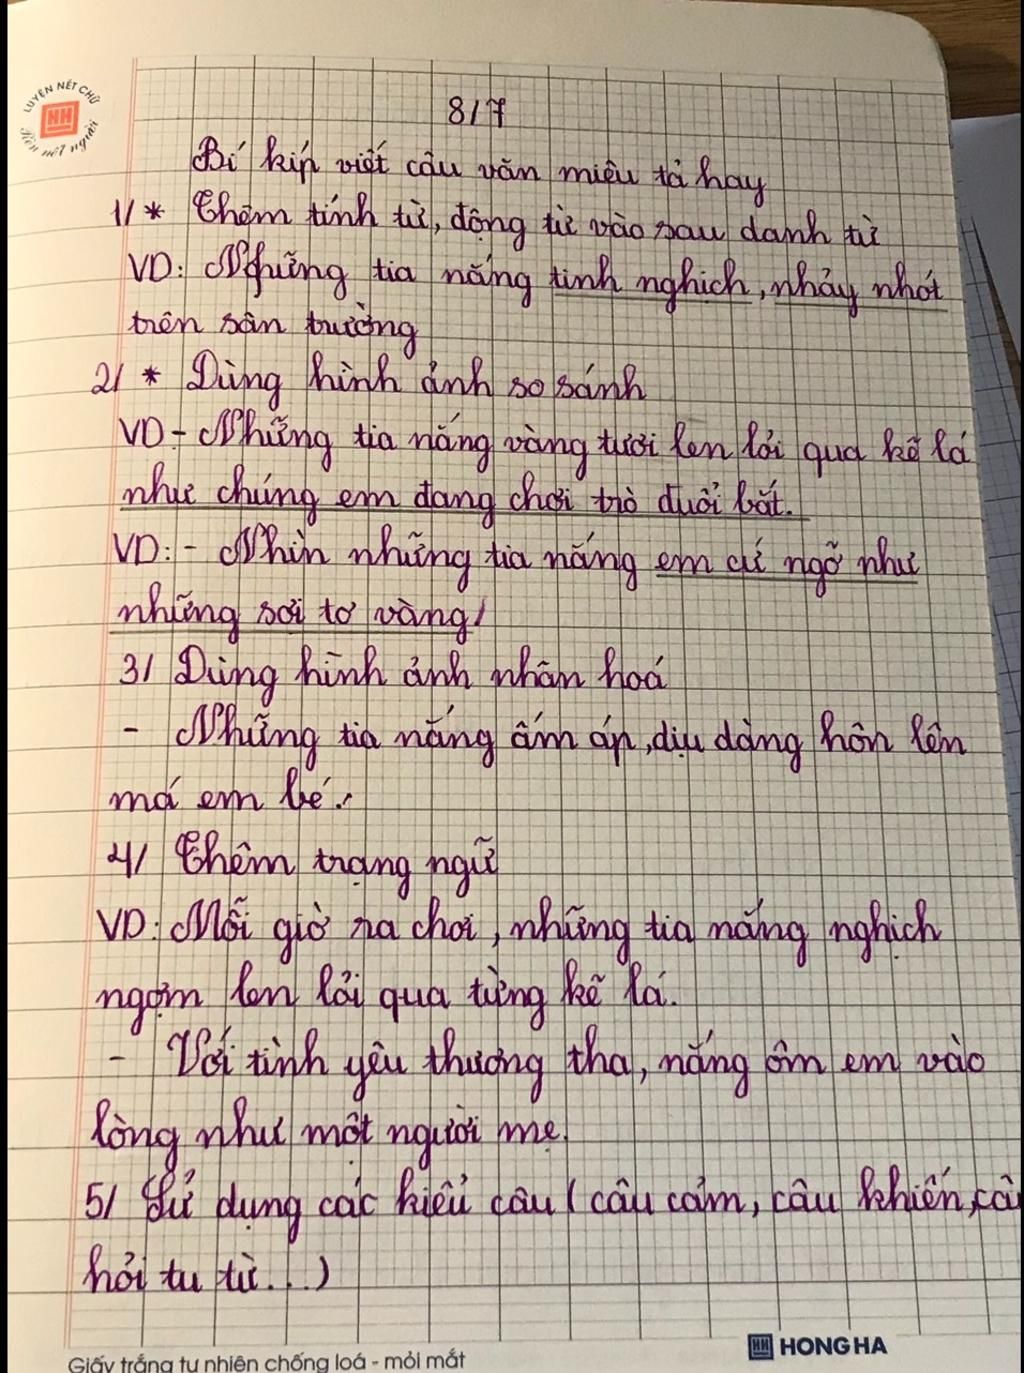 LUYỆN NÉT CHỮ
HH
Rèn nết người
8/7
Bí kíp viết câu văn miêu tả hay
1/* Thêm tính từ, động từ vào sau danh từ
VD: Những tia nắng tinh nghịch, nhảy nhót
trên sân trường
2/ * Dùng hình ảnh so sánh
VD - Những tia nắng vàng tươi len lỏi qua kẽ lá
như chúng em đang chơi trò đuổi bắt.
VD: - Nhìn những tia nắng em cứ ngỡ như
những sợi tơ vàng/
3/ Dùng hình ảnh nhân hoá
- Những tia nắng ấm áp, dịu dàng hôn lên
má em bé.
4/ Thêm trạng ngữ
VD: Mỗi giờ ra chơi, những tia nắng nghịch
ngợm len lỏi qua từng kẽ lá.
- Với tình yêu thương tha, nắng ôm em vào
lòng như một người mẹ.
5/ Sử dụng các kiểu câu (câu cảm, câu khiến, câ
hỏi tu từ...)
HH HONG HA
Giấy trắng tự nhiên chống loá - mỏi mắt